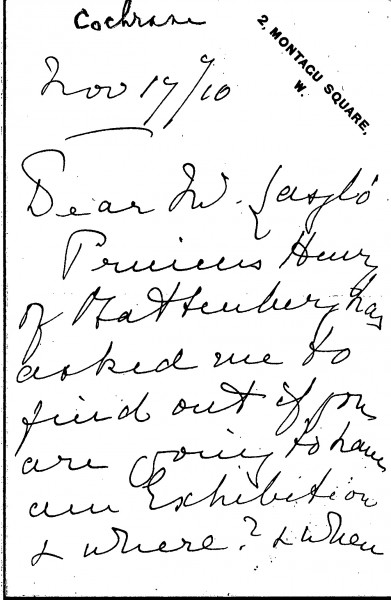 Cochrane
2, MONTAGU SQUARE,
W.
Nov 17/10
Dear Mr. László
Princess Henry
of Battenberg has
asked me to
find out if you
are going to have
an Exhibition
& where? & when